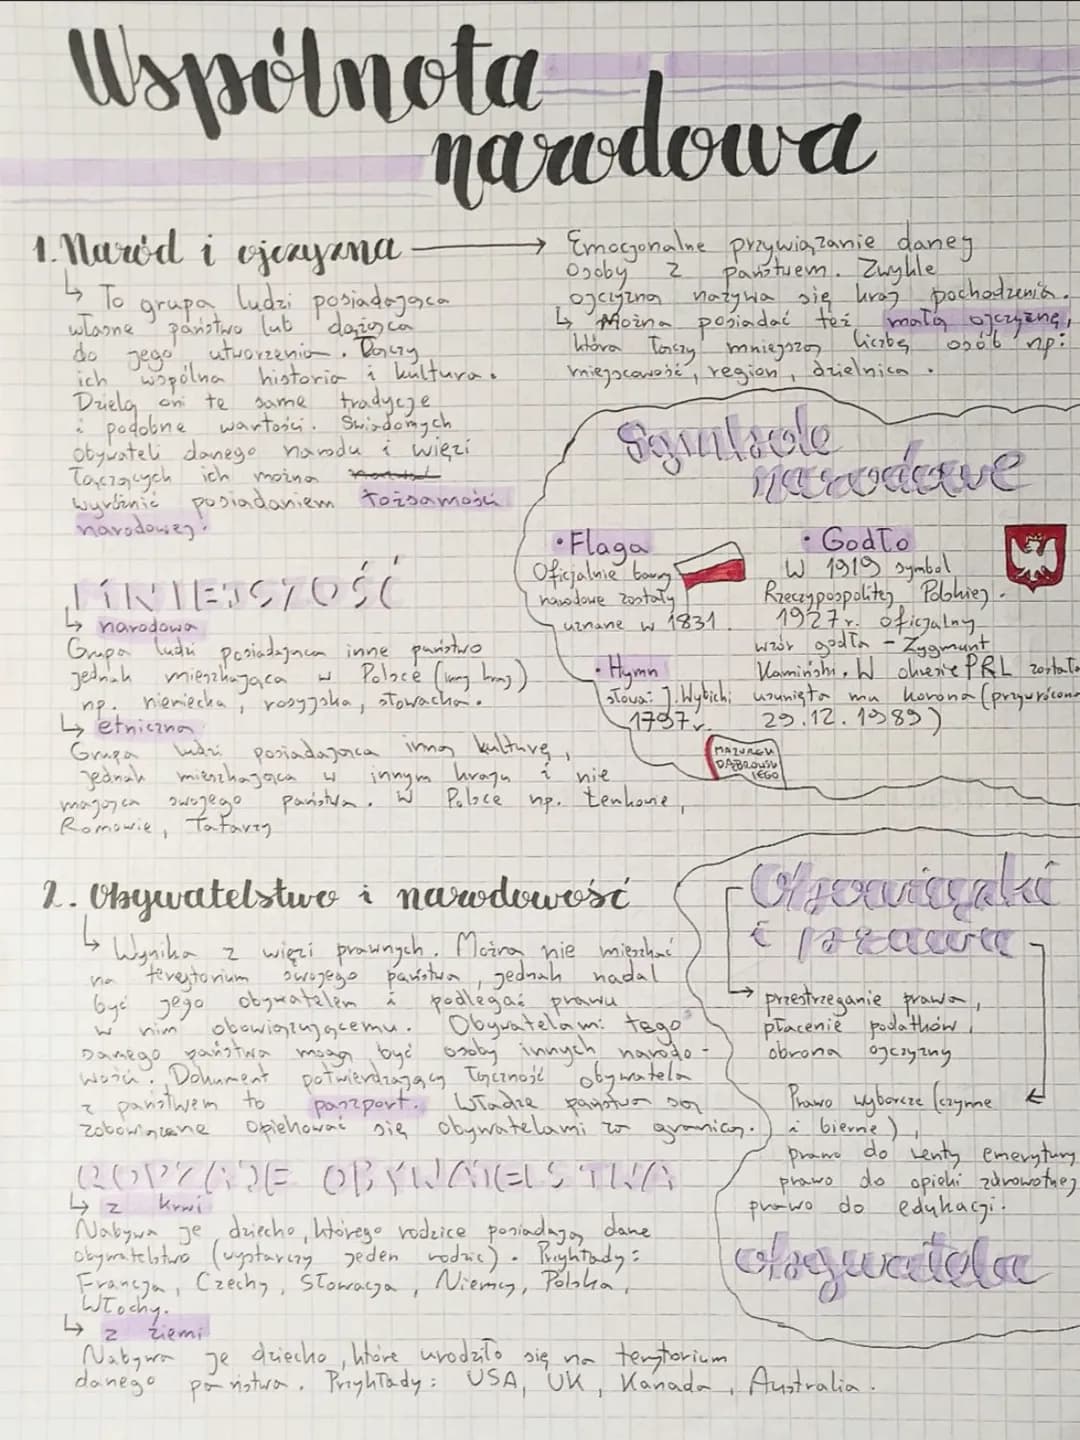 Wspólnota
narodowa
1. Naród i ojczyzna
↳ To grupa ludzi posiadająca
własne państwo lub dążąca
do jego utworzenia. Łączy
ich wspólna historia i kultura.
Dzielą oni te same tradycje
i podobne wartości. Świadomych
obywateli danego narodu i więzi
łączących ich można
wyróżnić posiadaniem tożsamości
narodowej.
→ Emocjonalne przywiązanie danej
osoby z państwem. Zwykle
ojczyzną nazywa się kraj pochodzenia.
↳ Można posiadać też małą ojczyznę,
która łączy mniejszą liczbę osób np:
miejscowość, region, dzielnica.
MNIEJSZOŚĆ
↳ narodowa
Grupa ludzi posiadająca inne państwo
jednak mieszkająca w Polsce (inny kraj)
np. niemiecka, rosyjska, słowacka.
↳ etniczna
Grupa ludzi posiadająca inną kulturę,
jednak mieszkająca w innym kraju i nie
mająca swojego państwa. W Polsce np. Łemkowie,
Romowie, Tatarzy
Symbole
narodowe
• Flaga
Oficjalnie barwy
narodowe zostały
uznane w 1831.
• Hymn
słowa: J. Wybicki
1797r.
MAZUREK
DĄBROWSK
IEGO
• Godło
W 1919 symbol
Rzeczypospolitej Polskiej.
1927r. oficjalny
wzór godła - Zygmunt
Kamiński. W okresie PRL została
usunięta mu korona (przywrócona
29.12.1989)
2. Obywatelstwo i narodowość
↳ Wynika z więzi prawnych. Można nie mieszkać
na terytorium swojego państwa, jednak nadal
być jego obywatelem i podlegać prawu
w nim obowiązującemu. Obywatelami tego
samego państwa mogą być osoby innych narodo-
wości. Dokument potwierdzający łączność obywatela
z państwem to paszport. Władze państwa są
zobowiązane opiekować się obywatelami za granicą.
RODZAJE OBYWATELSTWA
↳ z krwi
Nabywa je dziecko, którego rodzice posiadają dane
obywatelstwo (wystarczy jeden rodzic). Przykłady:
Francja, Czechy, Słowacja, Niemcy, Polska,
Włochy.
↳ z ziemi
Nabywa je dziecko, które urodziło się na terytorium
danego państwa. Przykłady: USA, UK, Kanada, Australia.
Obowiązki
i prawa
→ przestrzeganie prawa,
płacenie podatków,
obrona ojczyzny
Prawo wyborcze (czynne
i bierne),
prawo do renty emerytury
prawo do opieki zdrowotnej
prawo do edukacji.
obywatela